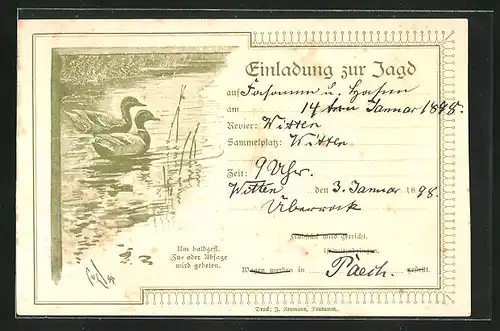 Einladung zur Jagd
auf Fasanen u. Hasen
am 14ten Januar 1898.
Revier: Witten
Sammelplatz: Witten
Zeit: 9 Uhr.
Witten den 3. Januar 1898.
Überrock
Frühstück wird gereicht.
Um baldgefl.
Zu- oder Absage
wird gebeten.
Wagen werden in Paech. gestellt.
Druck: J. Neumann, Neudamm.